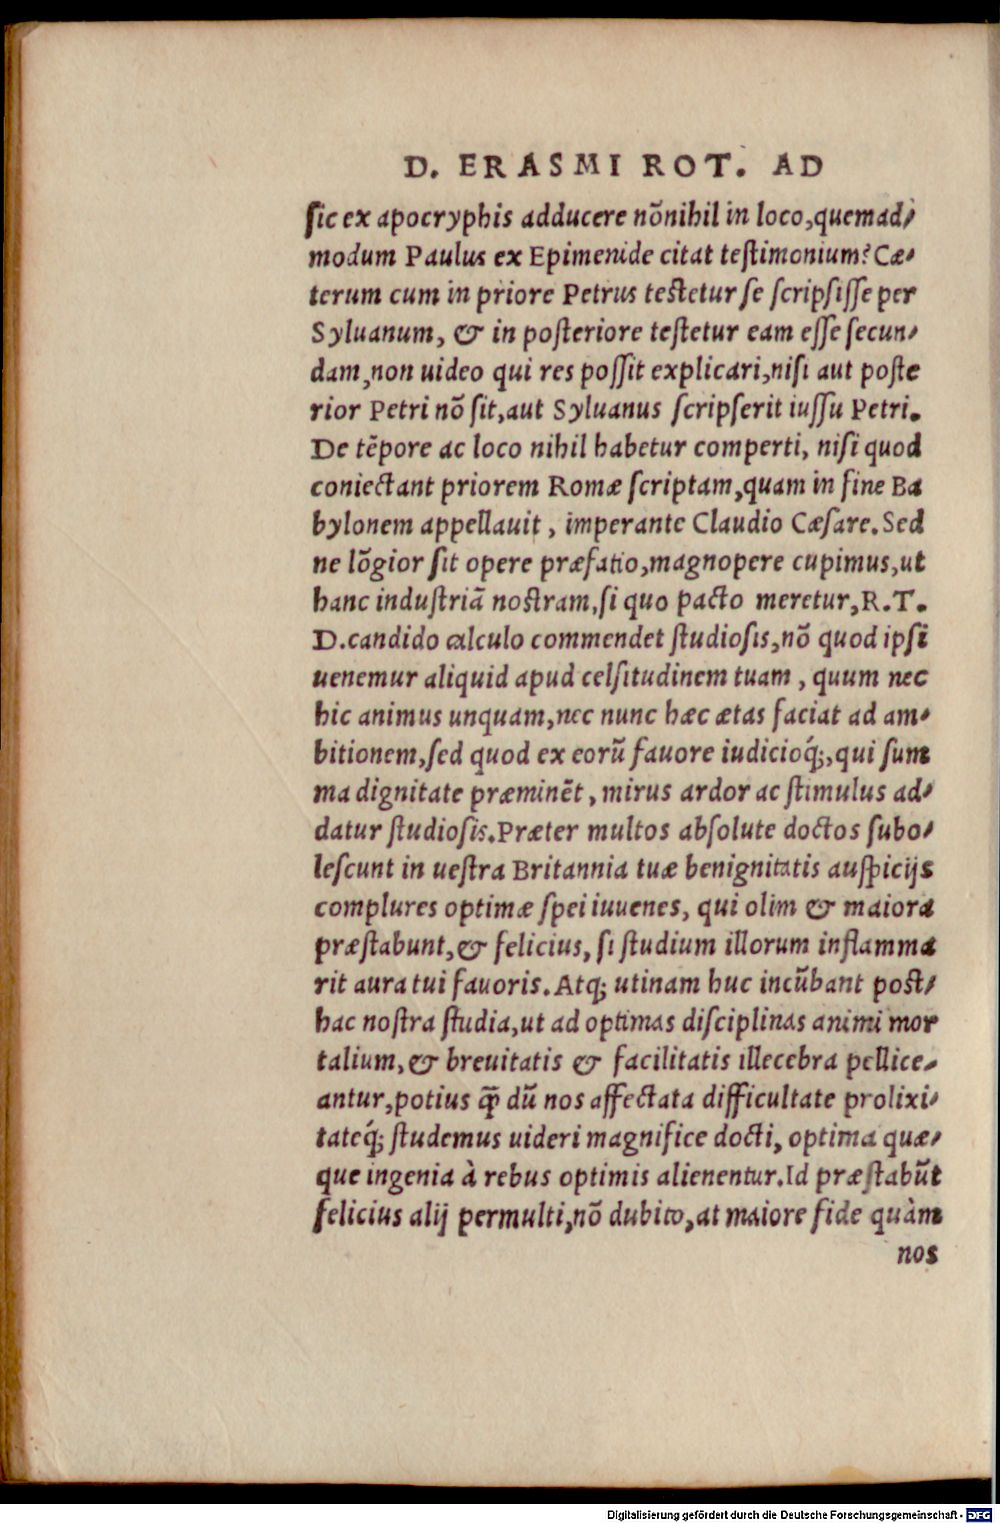 D. ERASMI ROT. AD
sic ex apocryphis adducere nõnihil in loco,quemad-
modum Paulus ex Epimenide citat testimonium? Cæ-
terum cum in priore Petrus testetur se scripsisse per
Syluanum, & in posteriore testetur eam esse secun-
dam,non uideo qui res possit explicari,nisi aut poste
rior Petri nõ sit,aut Syluanus scripserit iussu Petri.
De tẽpore ac loco nihil habetur comperti, nisi quod
coniectant priorem Romæ scriptam,quam in fine Ba
bylonem appellauit, imperante Claudio Cæsare. Sed
ne lõgior sit opere præfatio,magnopere cupimus,ut
hanc industriã nostram,si quo pacto meretur,R.T.
D.candido calculo commendet studiosis,nõ quod ipsi
uenemur aliquid apud celsitudinem tuam, quum nec
hic animus unquam,nec nunc hæc ætas faciat ad am-
bitionem,sed quod ex eorũ fauore iudicioq́;,qui sum
ma dignitate præminẽt, mirus ardor ac stimulus ad-
datur studiosis.Præter multos absolute doctos subo-
lescunt in uestra Britannia tuæ benignitatis auspicijs
complures optimæ spei iuuenes, qui olim & maiora
præstabunt,& felicius, si studium illorum inflamma
rit aura tui fauoris. Atq; utinam huc incũbant post-
hac nostra studia,ut ad optimas disciplinas animi mor
talium,& breuitatis & facilitatis illecebra pellice-
antur,potius q̃ dũ nos affectata difficultate prolixi-
tateq́; studemus uideri magnifice docti, optima quæ-
que ingenia à rebus optimis alienentur.Id præstabũt
felicius alij permulti,nõ dubito,at maiore fide quàm
nos
Digitalisierung gefördert durch die Deutsche Forschungsgemeinschaft - DFG